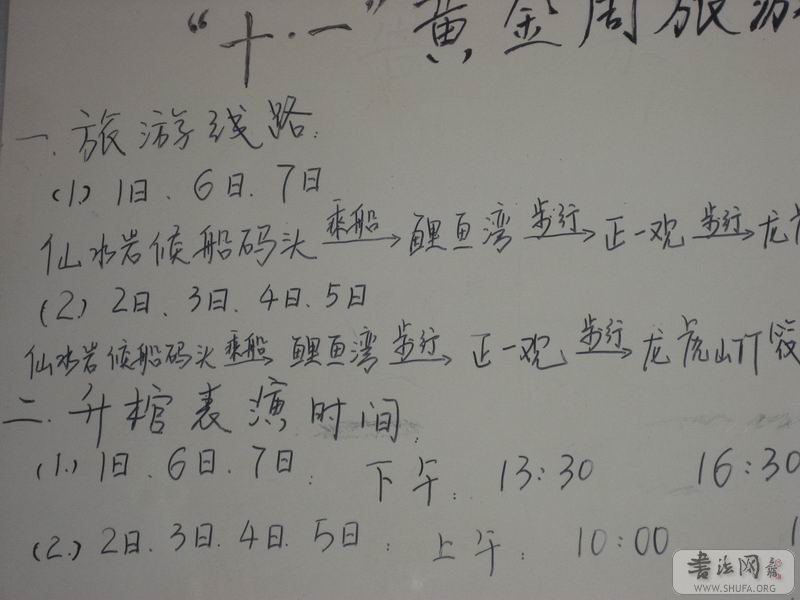 “十·一”黄金周旅游
一.旅游线路:
(1.) 1日、6日、7日
仙水岩候船码头 乘船→ 鲤鱼湾 步行→ 正一观 步行→ 龙虎
(2.) 2日、3日、4日、5日
仙水岩候船码头 乘船→ 鲤鱼湾 步行→ 正一观 步行→ 龙虎山竹筏
二.升棺表演时间:
(1.) 1日、6日、7日: 下午: 13:30 16:30
(2.) 2日、3日、4日、5日: 上午: 10:00 1
書法网
WWW.SHUFA.ORG